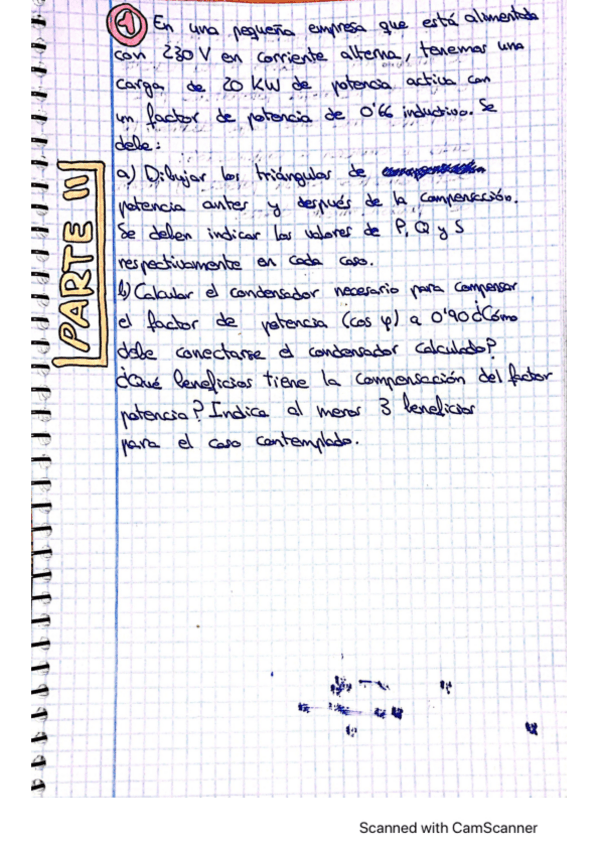 ① En una pequeña empresa que está alimentada
con 230 V en corriente alterna, tenemos una
carga de 20 KW de potencia activa con
un factor de potencia de 0'66 inductivo. Se
debe:
a) Dibujar los triángulos de
potencia antes y después de la compensación.
Se deben indicar los valores de P, Q y S
respectivamente en cada caso.
b) Calcular el condensador necesario para compensar
el factor de potencia (cos φ) a 0'90 ¿Cómo
debe conectarse el condensador calculado?
¿Qué beneficios tiene la compensación del factor
potencia? Indica al menos 3 beneficios
para el caso contemplado.
PARTE III
Scanned with CamScanner